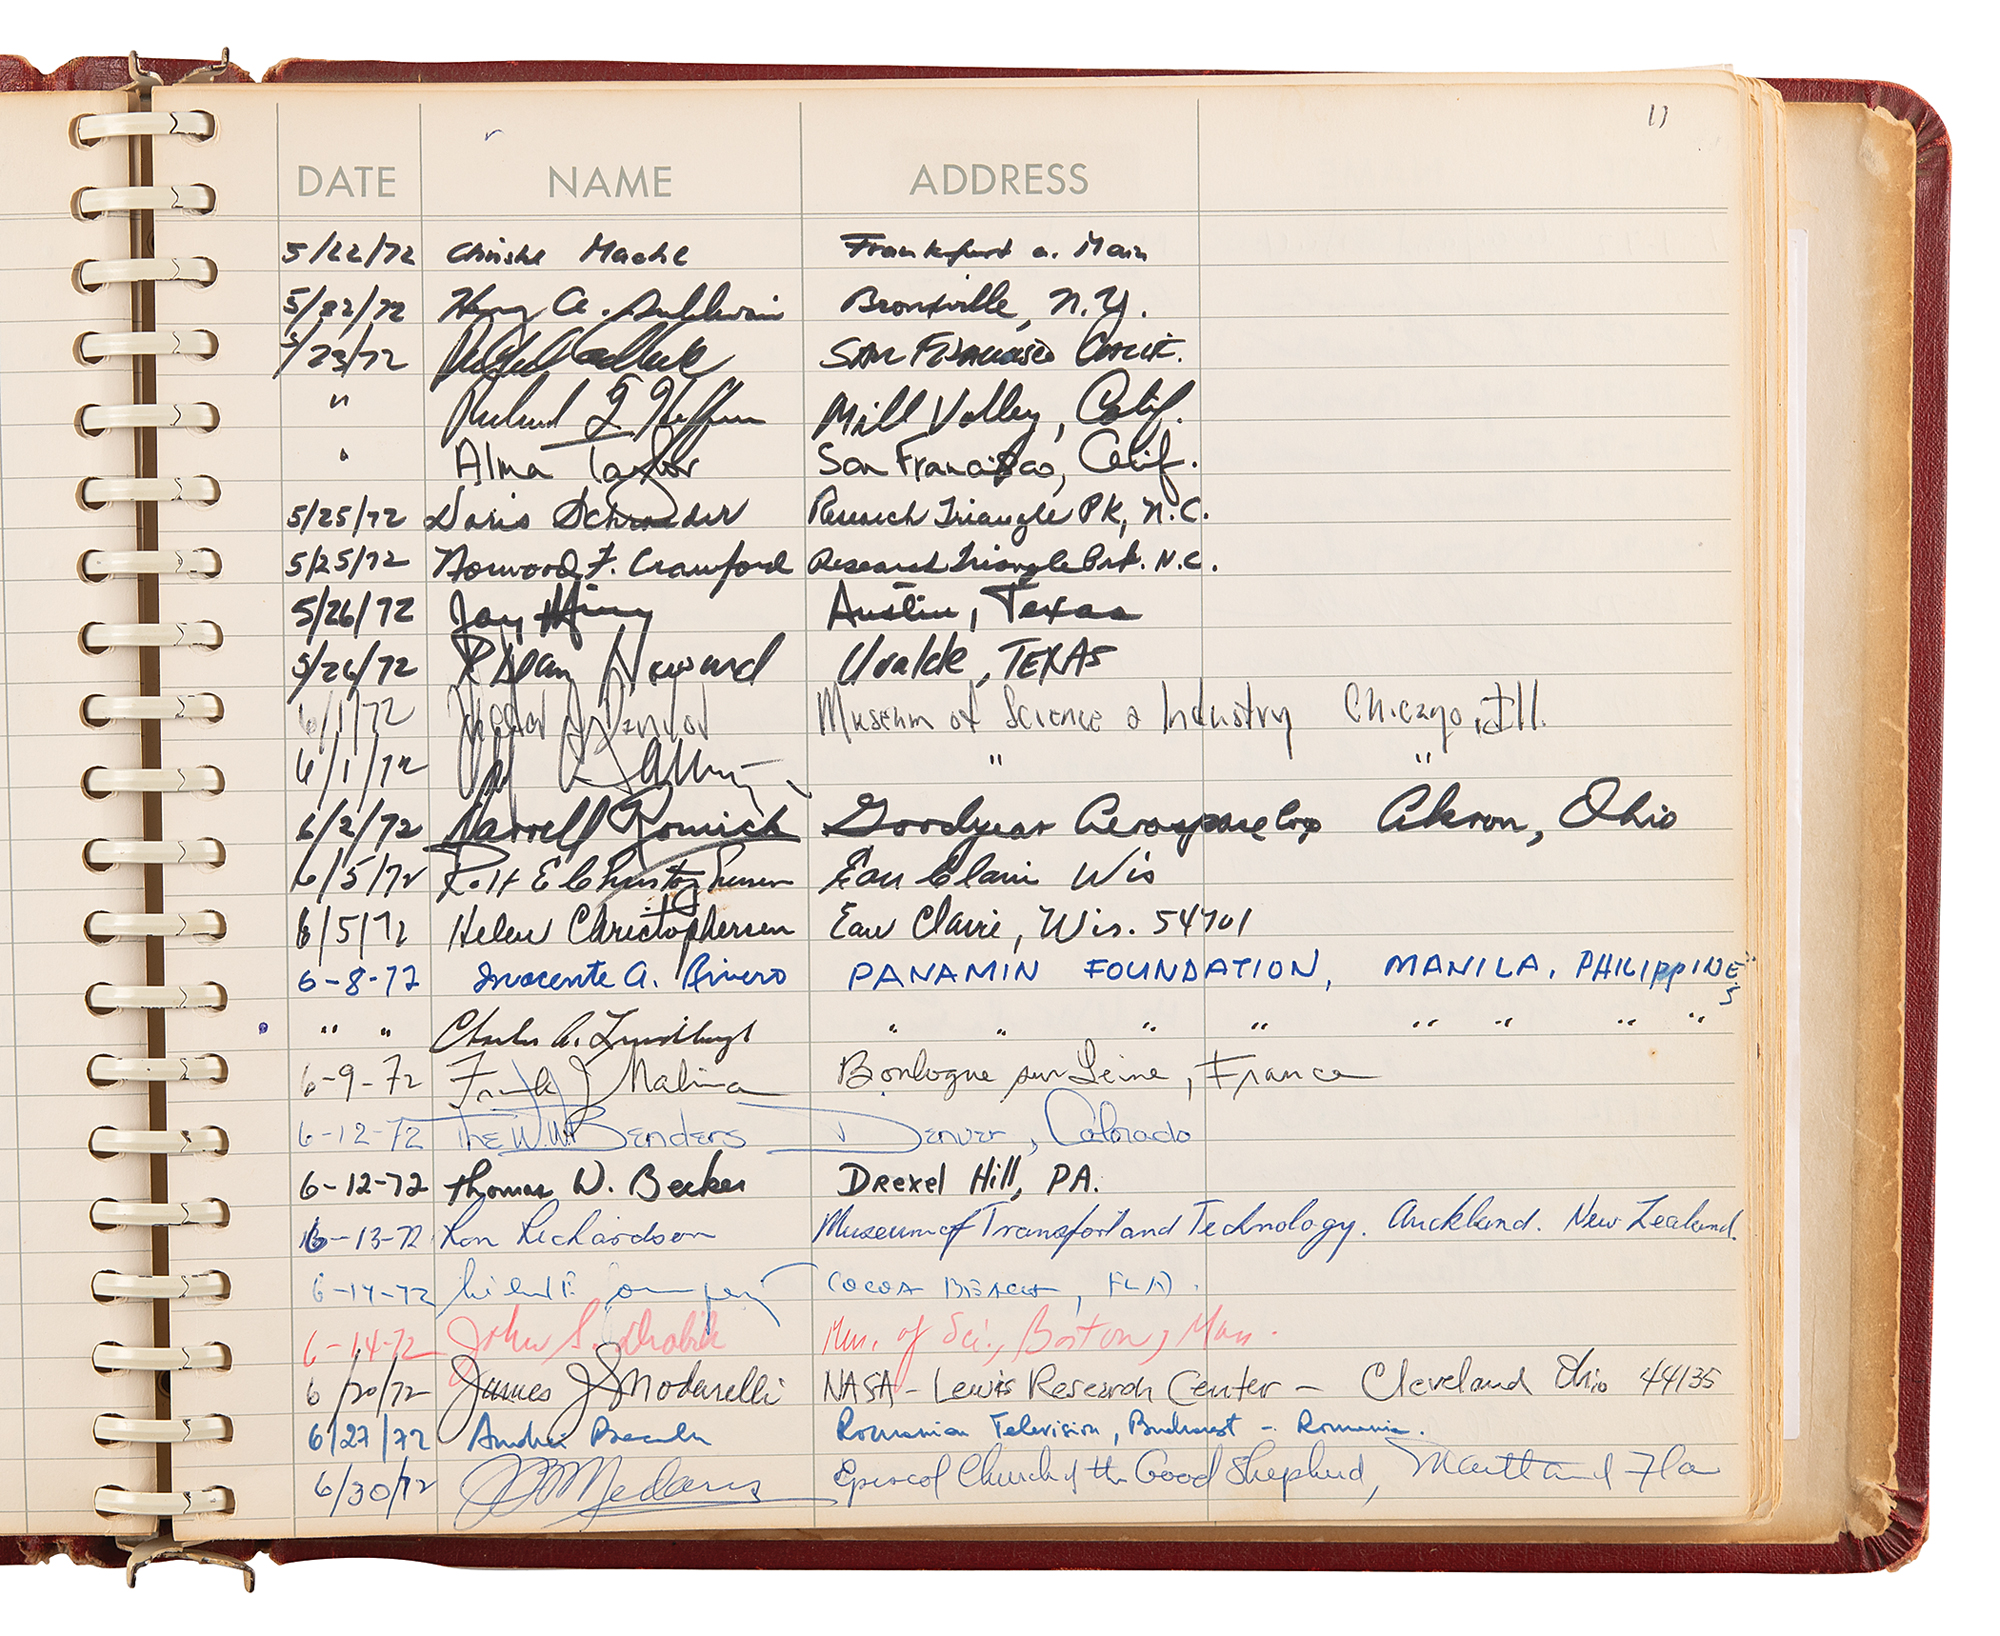 11
DATE NAME ADDRESS
5/22/72 Frankfurt a. Main
5/22/72 Henry A. Bronxville, N.Y.
5/23/72 San Francisco
" Richard Mill Valley, Calif.
" Alma Taylor San Francisco, Calif.
5/25/72 Doris Schroeder Research Triangle Pk, N.C.
5/25/72 Norwood F. Crawford Research Triangle Prk. N.C.
5/26/72 Jay Austin, Texas
5/26/72 R Dean Howard Uvalde, TEXAS
6/1/72 Museum of Science & Industry Chicago, Ill.
6/1/72 " "
6/2/72 Darrell Romick Goodyear Aerospace Corp Akron, Ohio
6/5/72 Eau Claire Wis
6/5/72 Helen Christophersen Eau Claire, Wis. 54701
6-8-72 Inocente A. Rivero PANAMIN FOUNDATION, MANILA, PHILIPPINES
" " Charles A. Lindbergh " " " " " " " "
6-9-72 Frank J Malina Boulogne sur Seine, France
6-12-72 The W.W. Benders Denver, Colorado
6-12-72 Thomas W. Becker Drexel Hill, PA.
6-13-72 Ron Richardson Museum of Transport and Technology. Auckland. New Zealand.
6-14-72 COCOA BEACH, FLA.
6-14-72 John S. Mus. of Sci., Boston, Mass.
6/20/72 James J Modarelli NASA - Lewis Research Center - Cleveland Ohio 44135
6/27/72 Andrei Romanian Television, Bucharest - Romania.
6/30/72 Medaris Episcol Church of the Good Shepherd, Maitland Fla